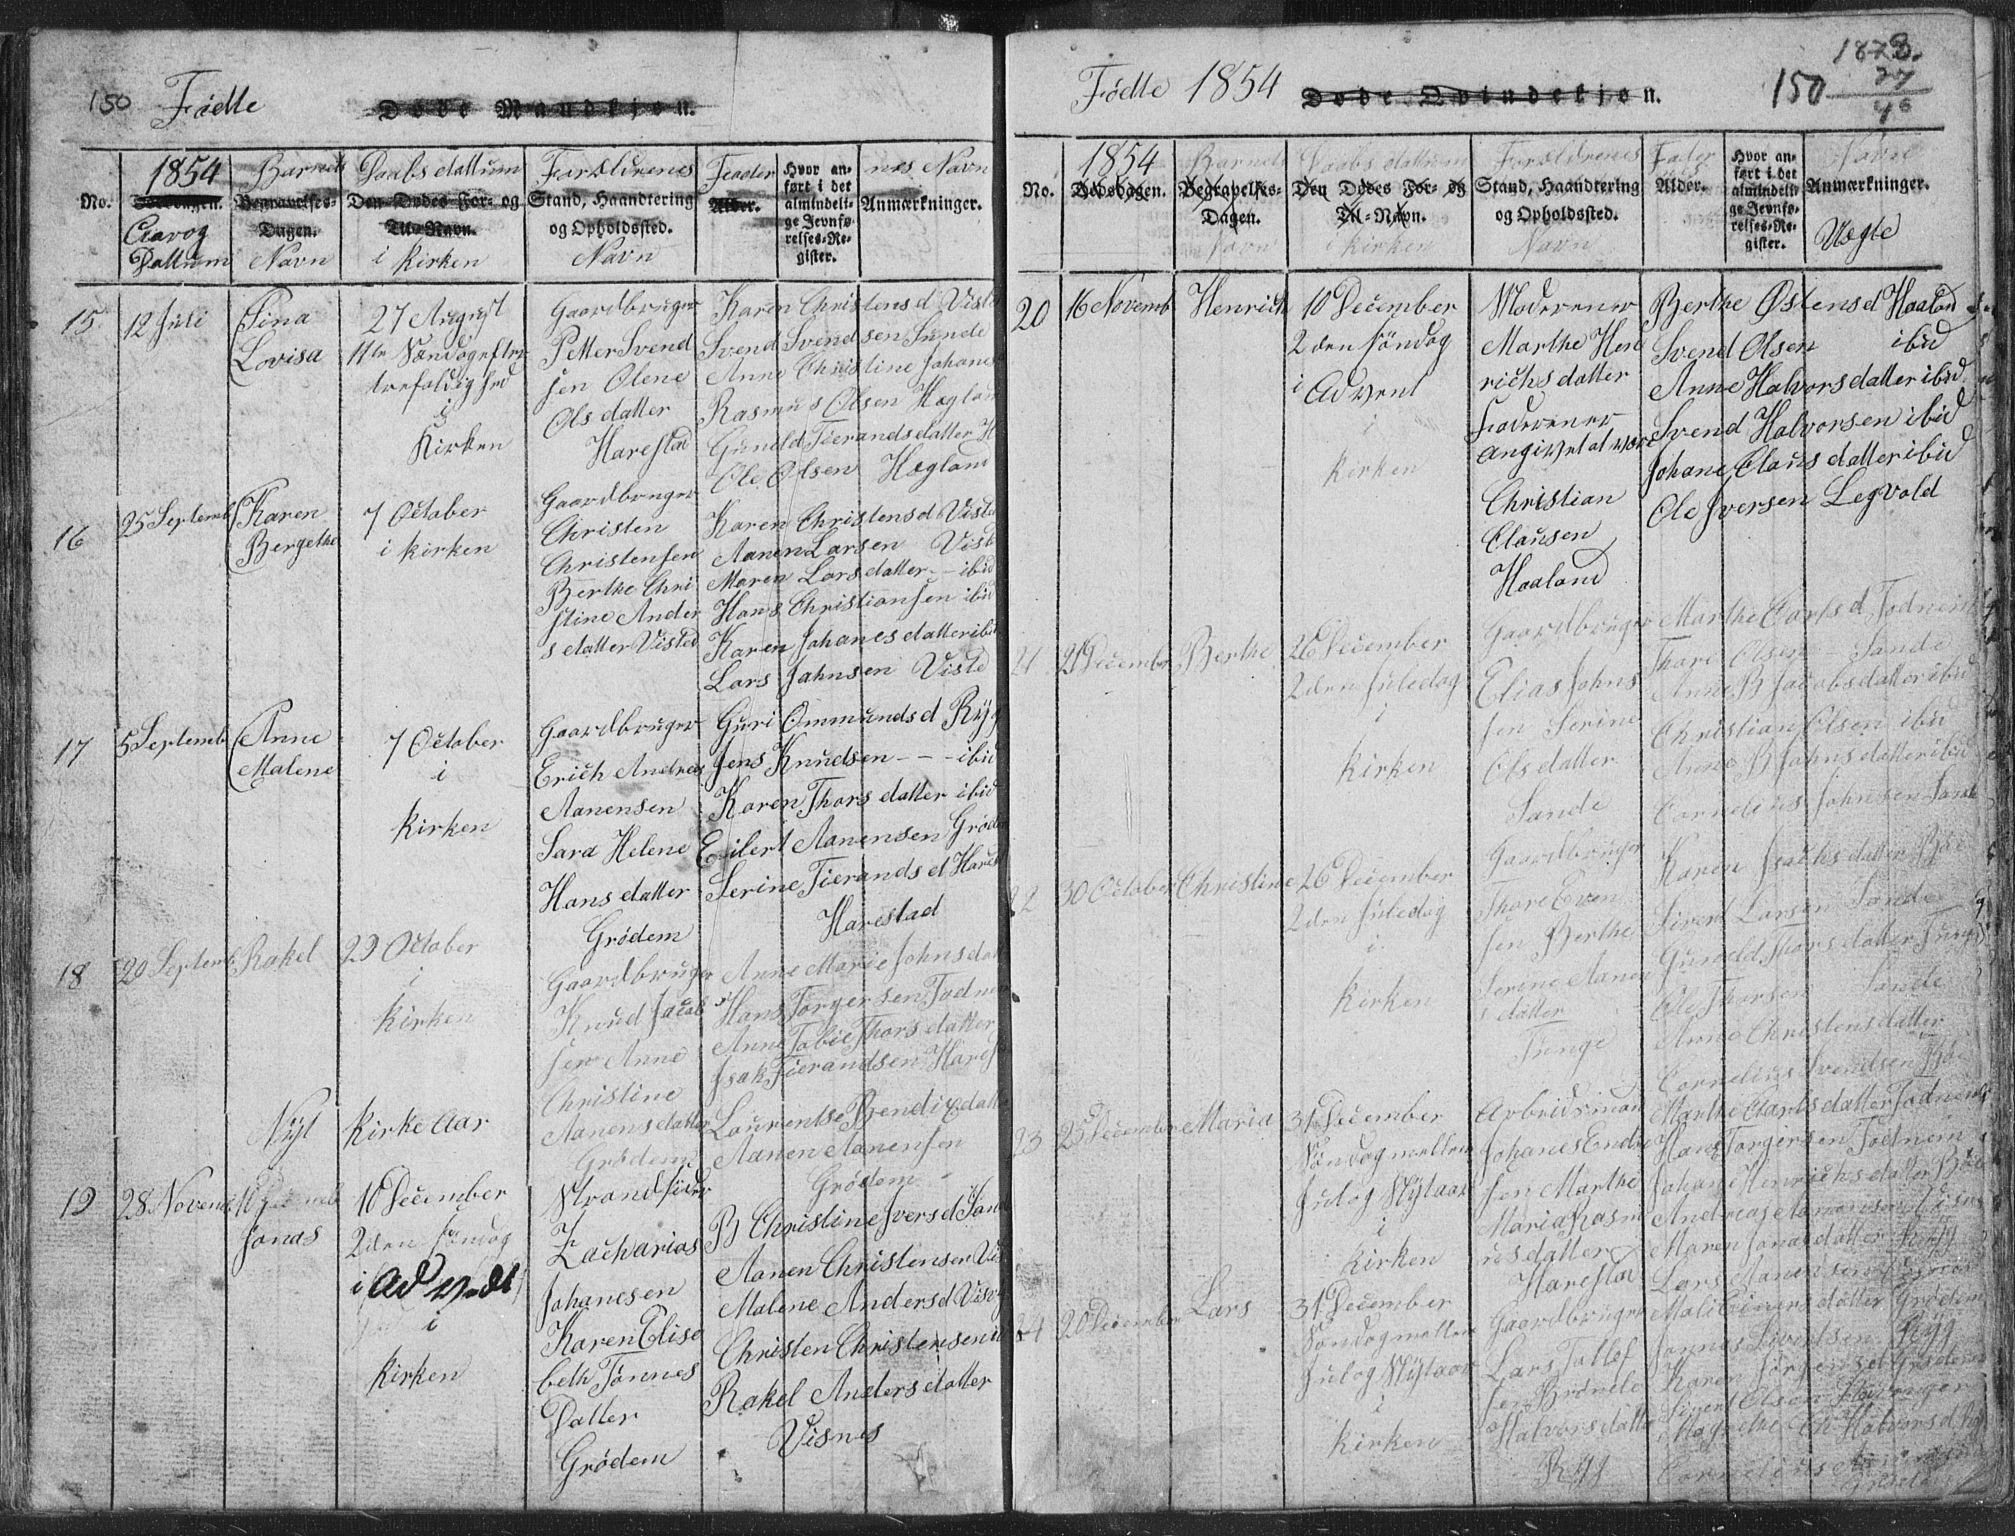 150 Fødte
Døde Mandkjøn.
No.
1854
Dødsdagen.
Barnets
Begravelses-
Dagen.
Navn
Daabs dattum
Den Dødes For- og
Til-Navn.
i kirken
Forældrenes
Stand, Haandtering
og Opholdssted.
Navn
Fader
Alder.
Hvor an-
ført i det
almindeli-
ge Jevnfø-
relses-Re-
gister.
nes Navn
Anmærkninger.
Dattum
15
12 Juli
Tina
Lovisa
27 August
11te Søndag efter
trefoldighed
i
Kirken
Gaardbruger
Petter Svend
sen Olene
Ols datter
Harestad
Karen Christens d Viste
Svend Svendsen Sunde
Anne Christine Johanes
Rasmus Olsen Hegland
Gunild Tierands datter H
Ole Olsen Hegland
16
25 Septemb
Karen
Bergethe
7 October
i kirken
Gaardbruger
Christen
Christensen
Berthe Chri
stine Ander
s datter Visted
Karen Christens d Viste
Aanen Larsen Viste
Maren Lars datter - ibid
Hans Christiansen ibid
Karen Johanes datter ibid
Lars Jahnsen Viste
17
5 Septemb
Anne
Malene
7 October
i
kirken
Gaardbruger
Erich Andreas
Aanensen
Sara Helene
Hans datter
Grødem
Guri Ommunds d Ryg
Jens Knudsen - - ibid
Karen Thors datter ibid
Eilert Aanensen Grødem
Serine Tierands d Hares
Harestad
18
20 Septemb
Rakel
29 October
i
kirken
Gaardbruger
Knud Jacob
sen Anne
Christine
Aanens datter
Grødem
Anne Marie Johns dat
Hans Torgersen Todnem
Anne Tobie Thors datter
Isak Tierandsen Hares
Laurentse Bendix datter
Aanen Aanensen
Grødem
Nyt kirke Aar
19
28 Novemb
Jonas
10 December
2den Søndag
i Advent
i
kirken
Strandsider
Zacharias
Johanesen
Karen Elisa
beth Tønnes
Datter
Grødem
B Christine Ivers d Sande
Aanen Christensen Vis
Malene Anders d Visn
Christen Christensen i
Rakel Anders datter
Visnes
Fødte 1854
Døde Qvindekjøn.
150
1873.
27
46
No.
1854
Dødsdagen.
Barnets
Begravelses-
Dagen.
Navn
Daabs dattum
Den Dødes For- og
Til-Navn.
i kirken
Forældrenes
Stand, Haandtering
og Opholdssted.
Navn
Fader
Alder.
Hvor an-
ført i det
almindeli-
ge Jevnfø-
relses-Re-
gister.
Navn
Anmærkninger.
Uægte
20
16 Novemb
Henrich
10 December
2den Søndag
i Advent
i
kirken
Moderen er
Marthe Hen
richs datter
Faderen er
angivet at være
Christian
Clausen
Haaland
Berthe Østens d Haaland
Svend Olsen ibid
Anne Halvors datter ibid
Svend Halvorsen ibid
Johane Claus datter ibid
Ole Iversen Legvold
21
21 December
Berthe
26 December
2den Juledag
i
kirken
Gaardbruger
Elias Johns
sen Serine
Ols datter
Sande
Marthe Carls d Todnem
Thore Olsen - Sande
Anne B Jacobs datter ibid
Christian Olsen ibid
Anne B Johns datter ibid
Cornelius Johnsen Sande
22
30 October
Christine
26 December
2den Juledag
i
kirken
Gaardbruger
Thore Even
sen Berthe
Serine Aanen
s datter
Tunge
Karen Isachs datter Bøe
Sivert Larsen Sande
Gunild Thors datter Tunge
Ole Thorsen Sande
Anne Christens datter
Cornelius Svendsen Bøe
23
25 December
Maria
31 December
Søndag mellem
Jul og Nytaar
i
kirken
Arbeidsman
Johanes Endre
sen Marthe
Maria Rasm
us datter
Harestad
Marthe Carls datter Todnem
Hans Torgersen Todnem
Johane Henrichs datter Bøe
Andreas Aamonsen Visnes
Maren Jonas datter Ryg
Lars Aanensen
24
20 December
Lars
31 December
Søndag mellem
Jul og Nytaar
i
kirken
Gaardbruger
Lars Tollef
sen Brønele
Halvors datter
Ryg
Mali Einars datter Grødem
Jonnes Sivertsen Ryg
Karen Jørgens d Grødem
Sivert Olsen Stavanger
Magrethe Ch Halvors d Ryg
Cornelius